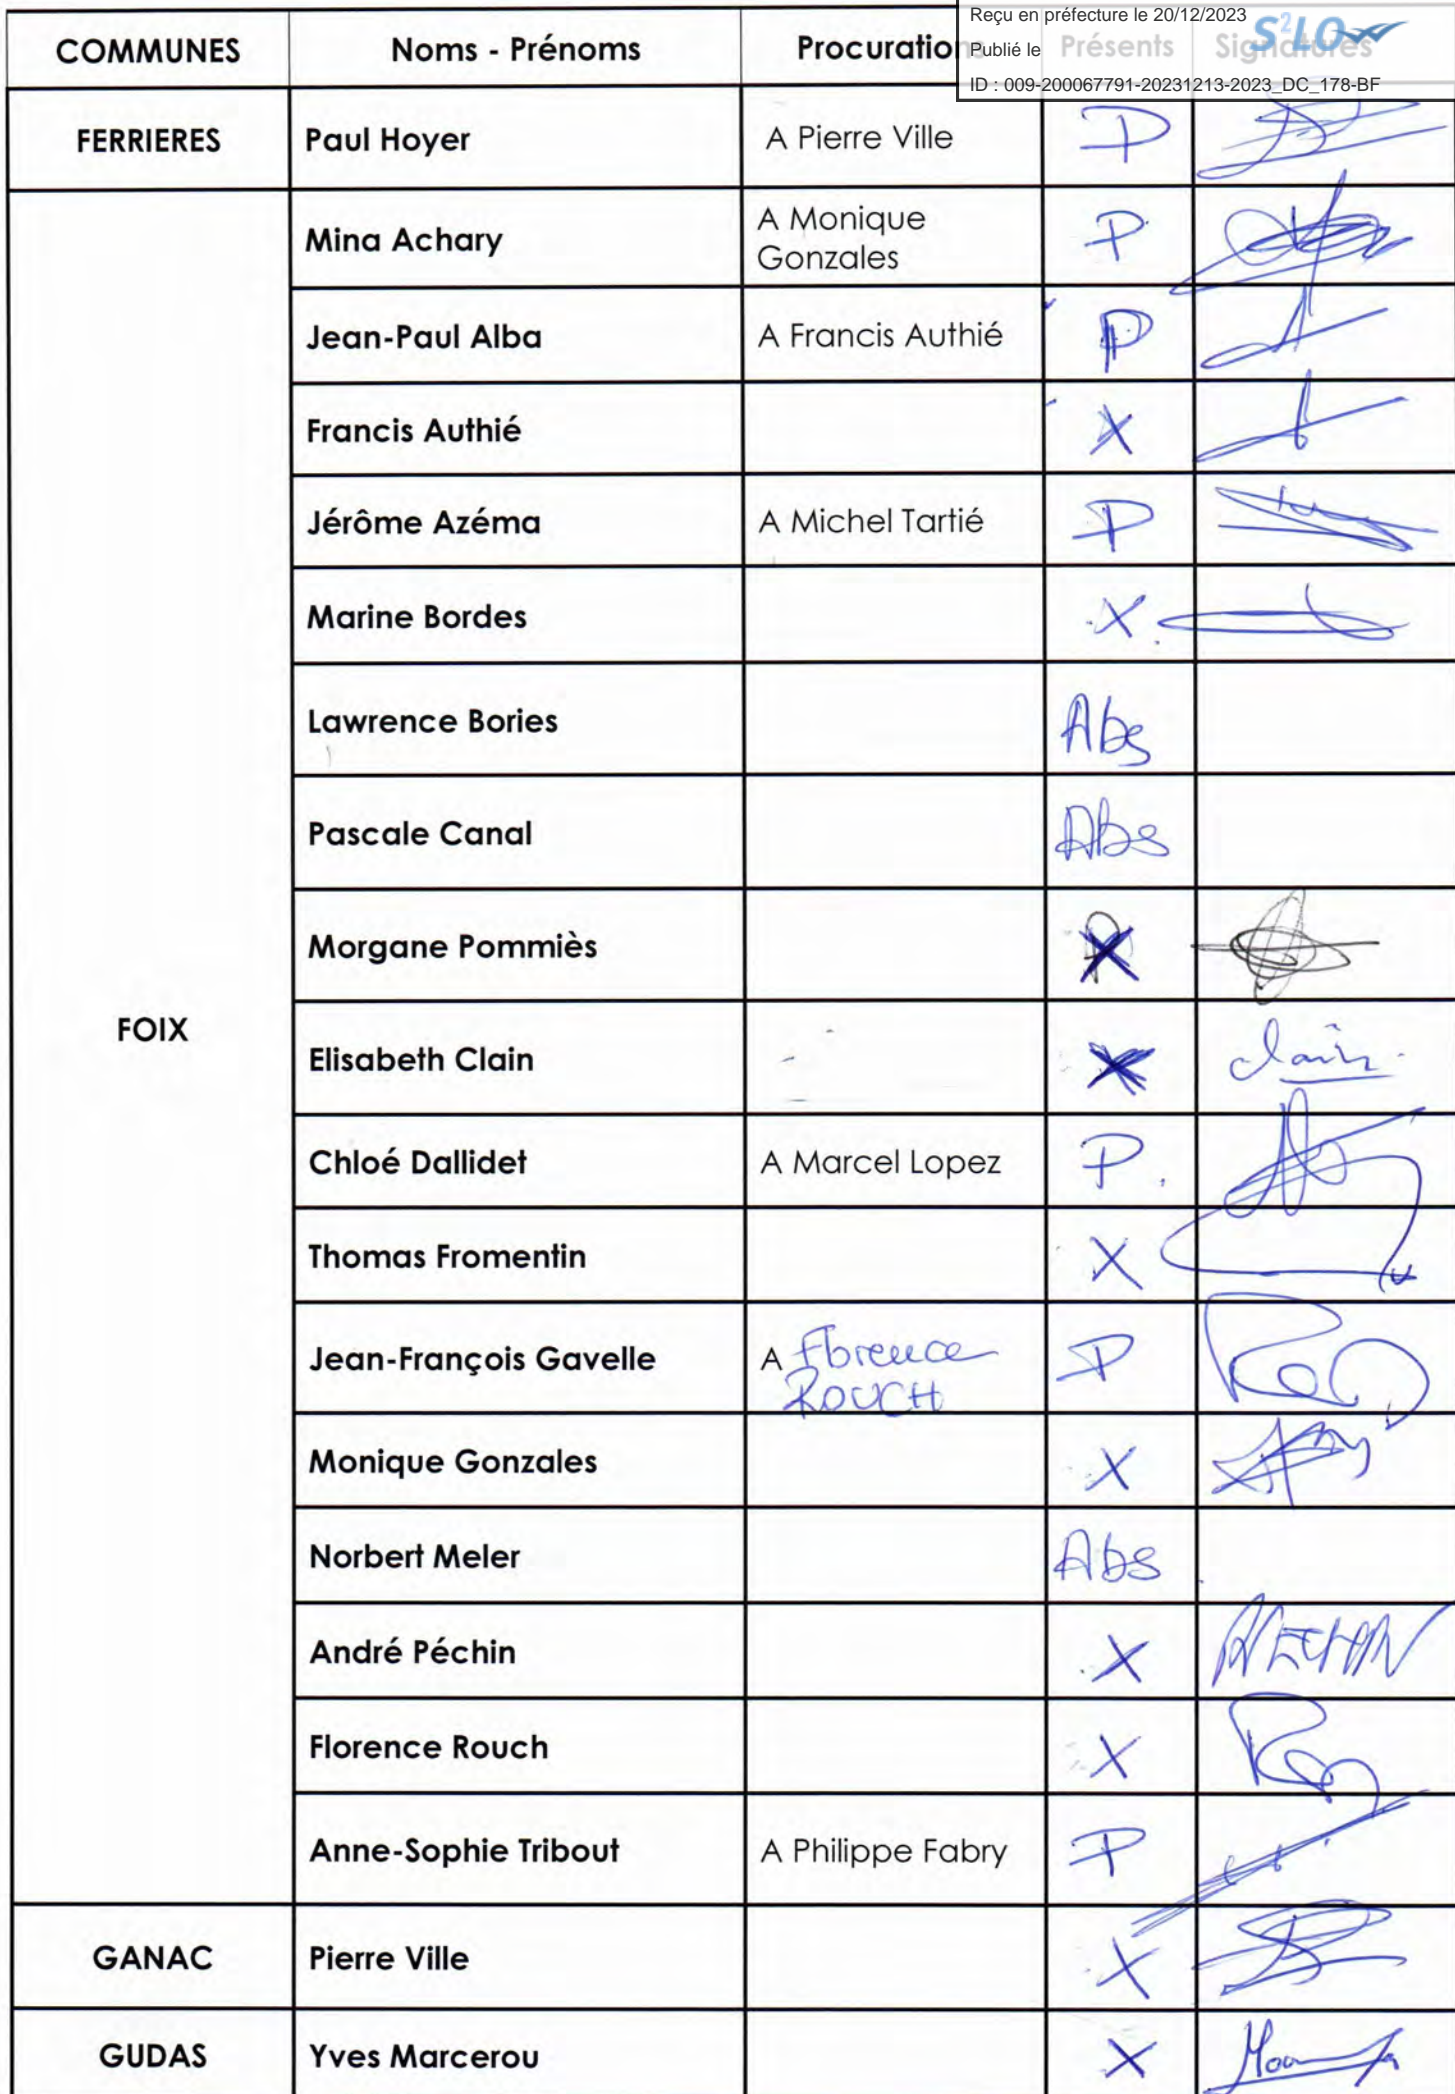 Reçu en préfecture le 20/12/2023
Publié le
S²LO
ID : 009-200067791-20231213-2023_DC_178-BF
COMMUNES Noms - Prénoms Procurations Présents Signatures
FERRIERES Paul Hoyer A Pierre Ville P
FOIX
Mina Achary A Monique P
Gonzales
Jean-Paul Alba A Francis Authié P
Francis Authié X
Jérôme Azéma A Michel Tartié P
Marine Bordes X
Lawrence Bories Abs
Pascale Canal Abs
Morgane Pommiès X
Elisabeth Clain X Clain
Chloé Dallidet A Marcel Lopez P
Thomas Fromentin X
Jean-François Gavelle A Florence P
ROUCH
Monique Gonzales X
Norbert Meler Abs
André Péchin X
Florence Rouch X
Anne-Sophie Tribout A Philippe Fabry P
GANAC Pierre Ville X
GUDAS Yves Marcerou X